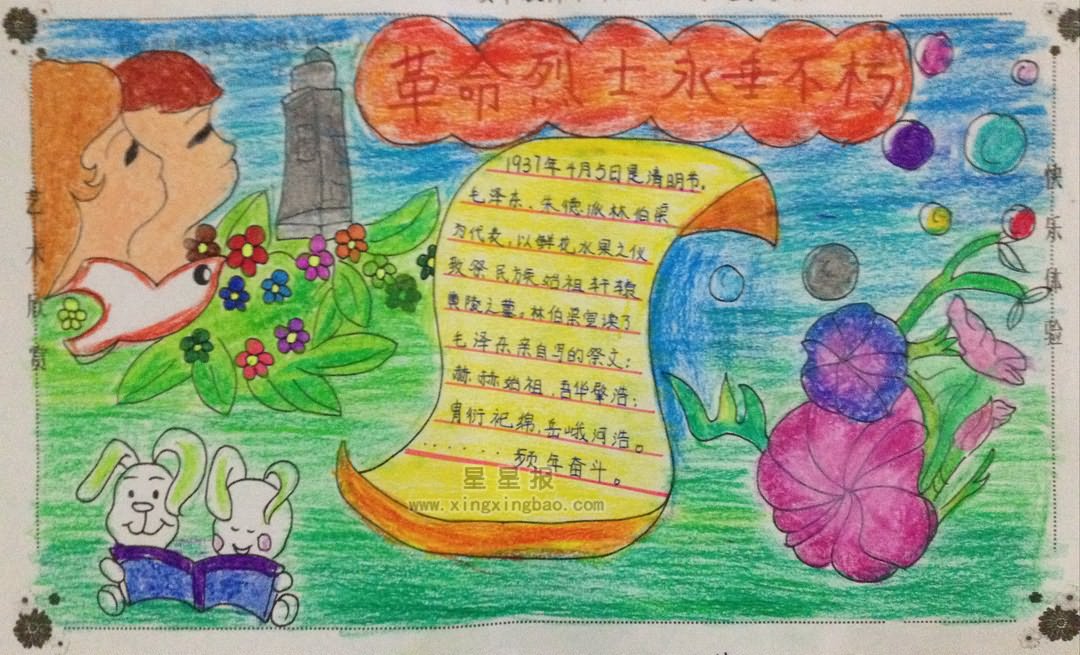 革命烈士永垂不朽
1937年4月5日是清明节。
毛泽东、朱德派林伯渠
为代表，以鲜花水果之仪
致祭民族始祖轩辕
黄陵之墓。林伯渠宣读了
毛泽东亲自写的祭文：
赫赫始祖，吾华肇浩；
胄衍祀绵，岳峨河浩。
········频年奋斗。
星星报
www.xingxingbao.com
艺术欣赏
快乐体验